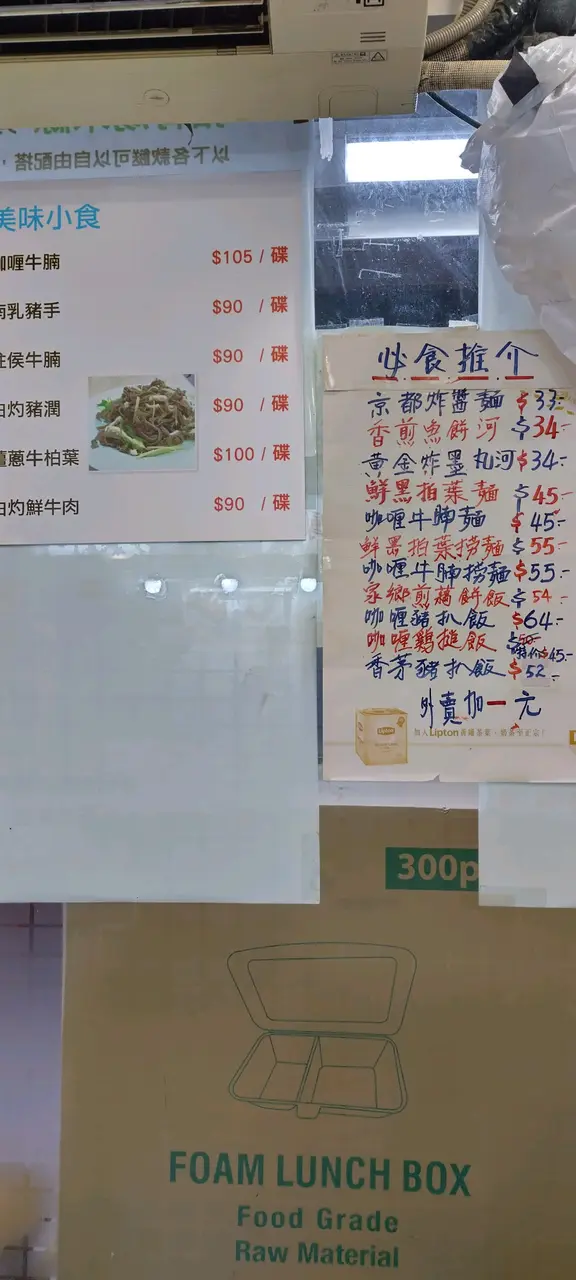 以下各款餸可以自由配搭，
美味小食
咖喱牛腩 $105 / 碟
南乳豬手 $90 / 碟
柱侯牛腩 $90 / 碟
白灼豬潤 $90 / 碟
薑蔥牛柏葉 $100 / 碟
白灼鮮牛肉 $90 / 碟
必食推介
京都炸醬麵 $33.-
香煎魚餅河 $34.-
黃金炸墨丸河 $34.-
鮮黑拍葉麵 $45.-
咖喱牛腩麵 $45.-
鮮黑拍葉撈麵 $55.-
咖喱牛腩撈麵 $55.-
家鄉煎藕餅飯 $54.-
咖喱豬扒飯 $64.-
咖喱鷄搥飯 $50.- 特价$45.-
香茅豬扒飯 $52.-
外賣加一元
加入Lipton黃罐茶葉，
300p
FOAM LUNCH BOX
Food Grade
Raw Material